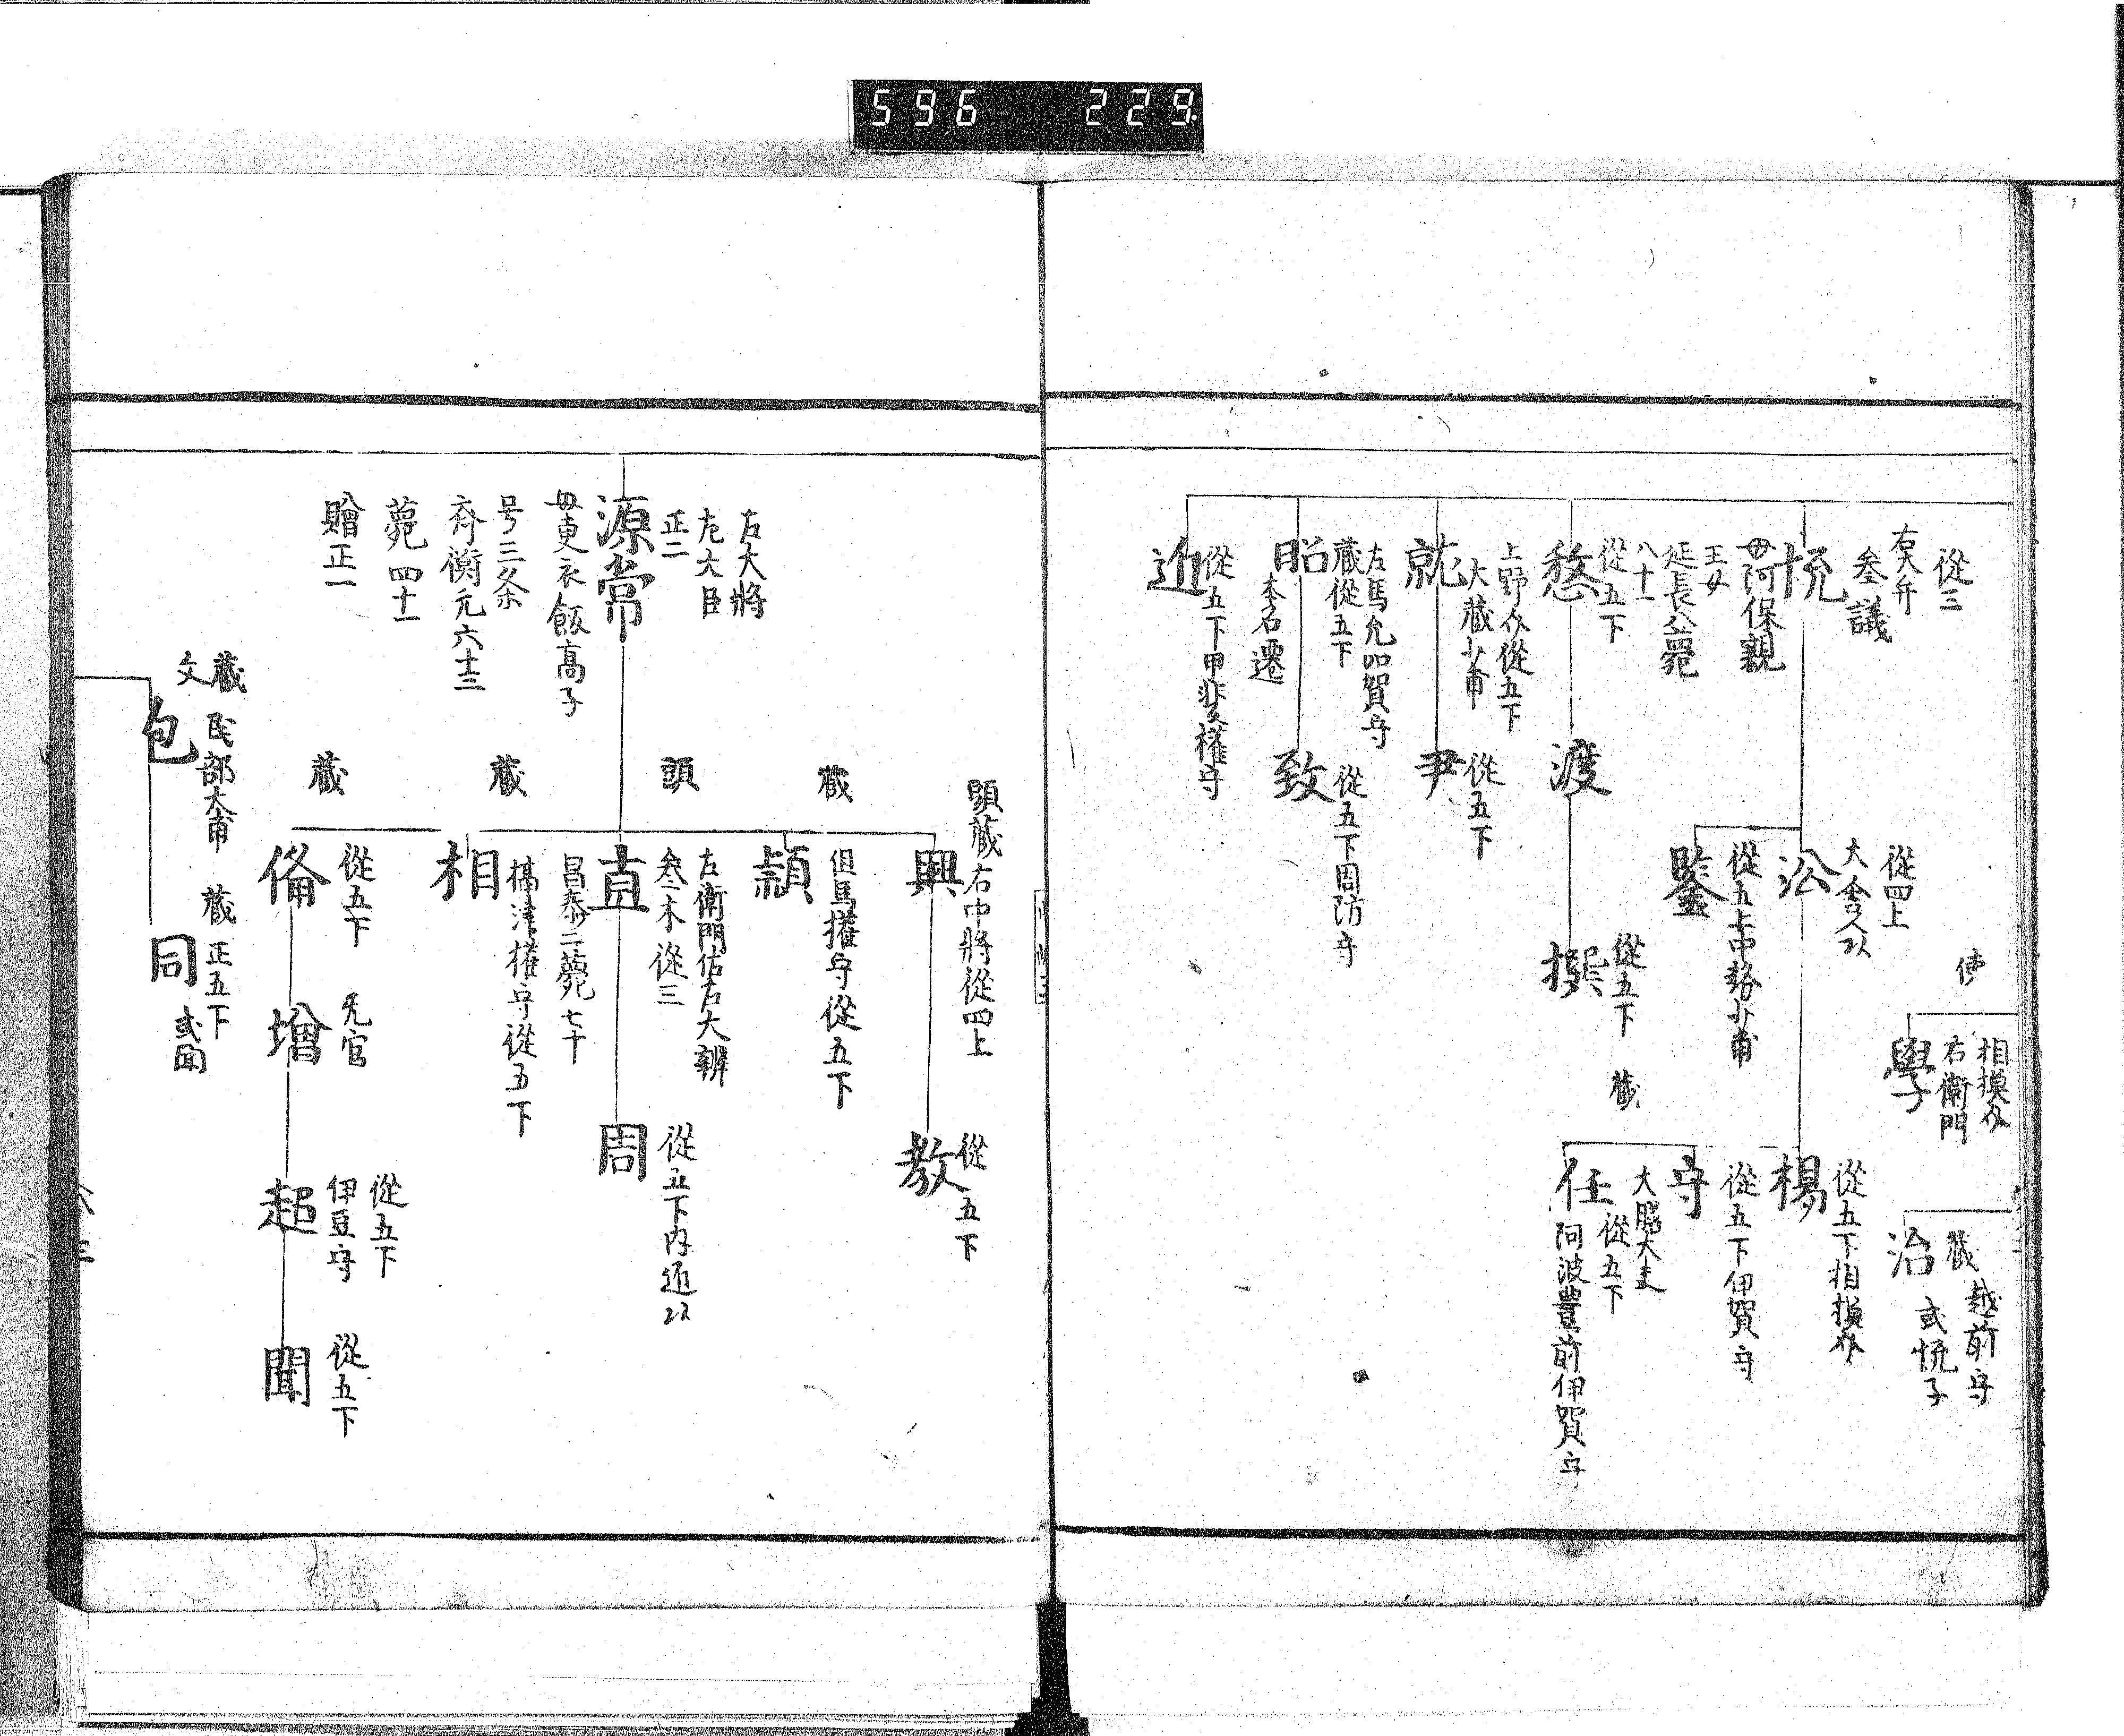 596 229
使
學
相摸介
右衛門
治
蔵
越前守
或悦子
從三
右大弁
叁議
悦
母阿保親
王女
延長八薨
八十一
從四上
大舍人以
從五上中務少甫
鑒
楊
從五下相摸介
守
從五下伊賀守
大膳大夫
任
從五下
阿波豊前伊賀守
從五下
愁
渡
撰
從五下
蔵
上野介從五下
大蔵少甫
就
尹
從五下
左馬允加賀守
蔵從五下
昭
本名遷
致
從五下周防守
從五下甲斐權守
近
頭蔵右中將從四上
興
教
從五下
蔵
但馬權守從五下
頴
右大將
左大臣
正二
源常
母更衣飯高子
号三条
斉衡元六十三
薨四十一
贈正一
頭
左衛門佐右大辨
叁木從三
直
昌泰二薨七十
周
從五下内匠以
蔵
相
摂津權守從五下
蔵
從五下
脩
増
无官
超
從五下
伊豆守
聞
從五下
蔵
文
民部大甫
包
蔵
正五下
同
或囬